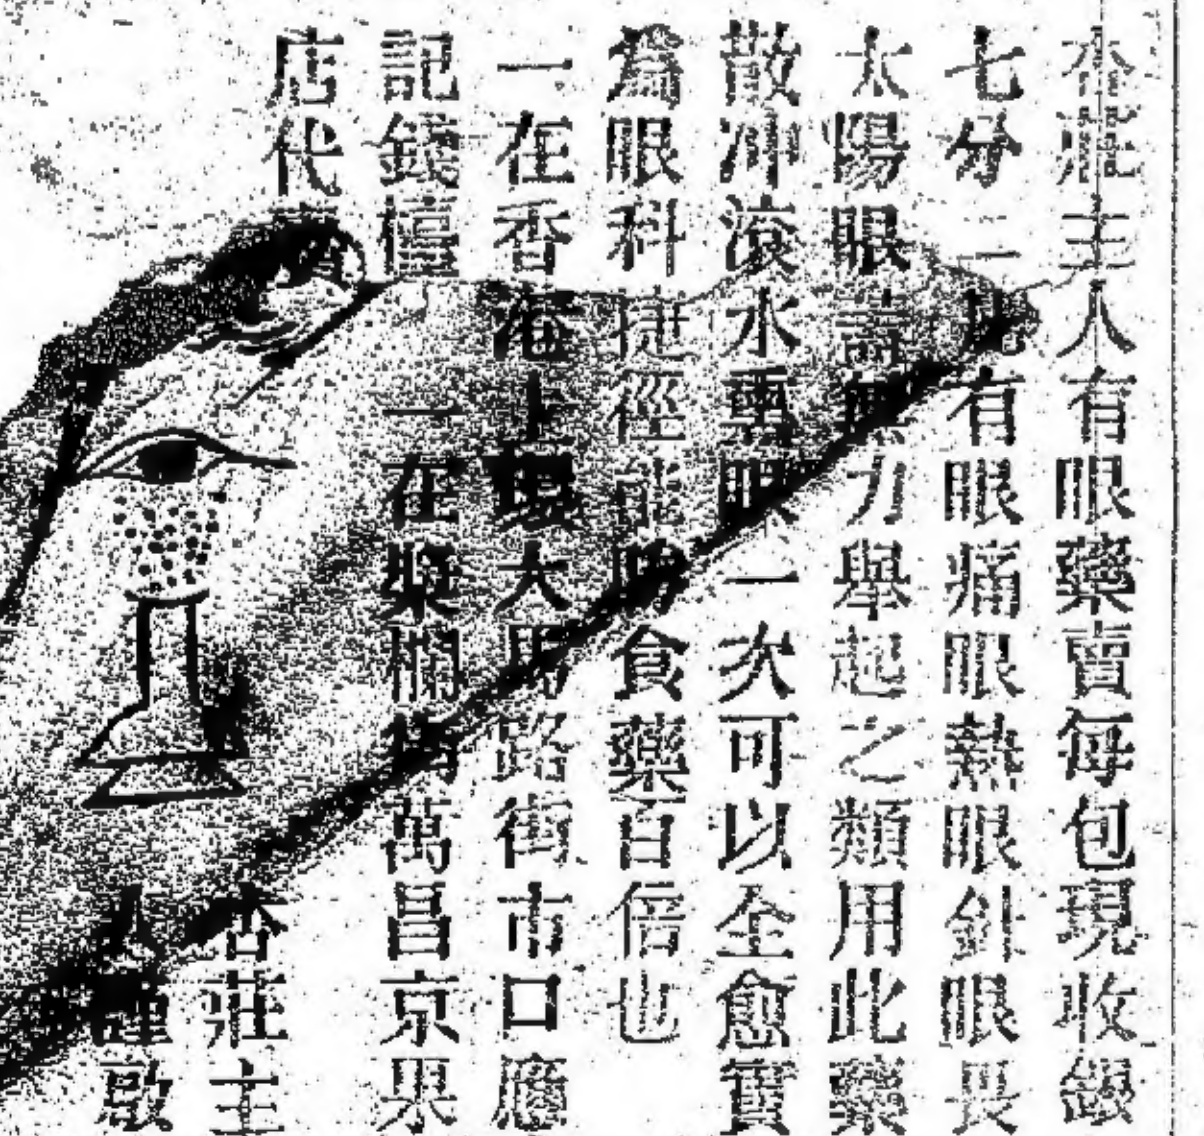 杏莊主人有眼藥賣每包現收銀
七分二凡有眼痛眼熱眼針眼畏
太陽眼蓋無力舉起之類用此藥
散冲滾水熏眼一次可以全愈實
爲眼科捷徑能勝食藥百倍也
一在香港上環大馬路街市口應
記錢檯 一在槳欄街萬昌京果
店代賣
杏莊主
人謹啟